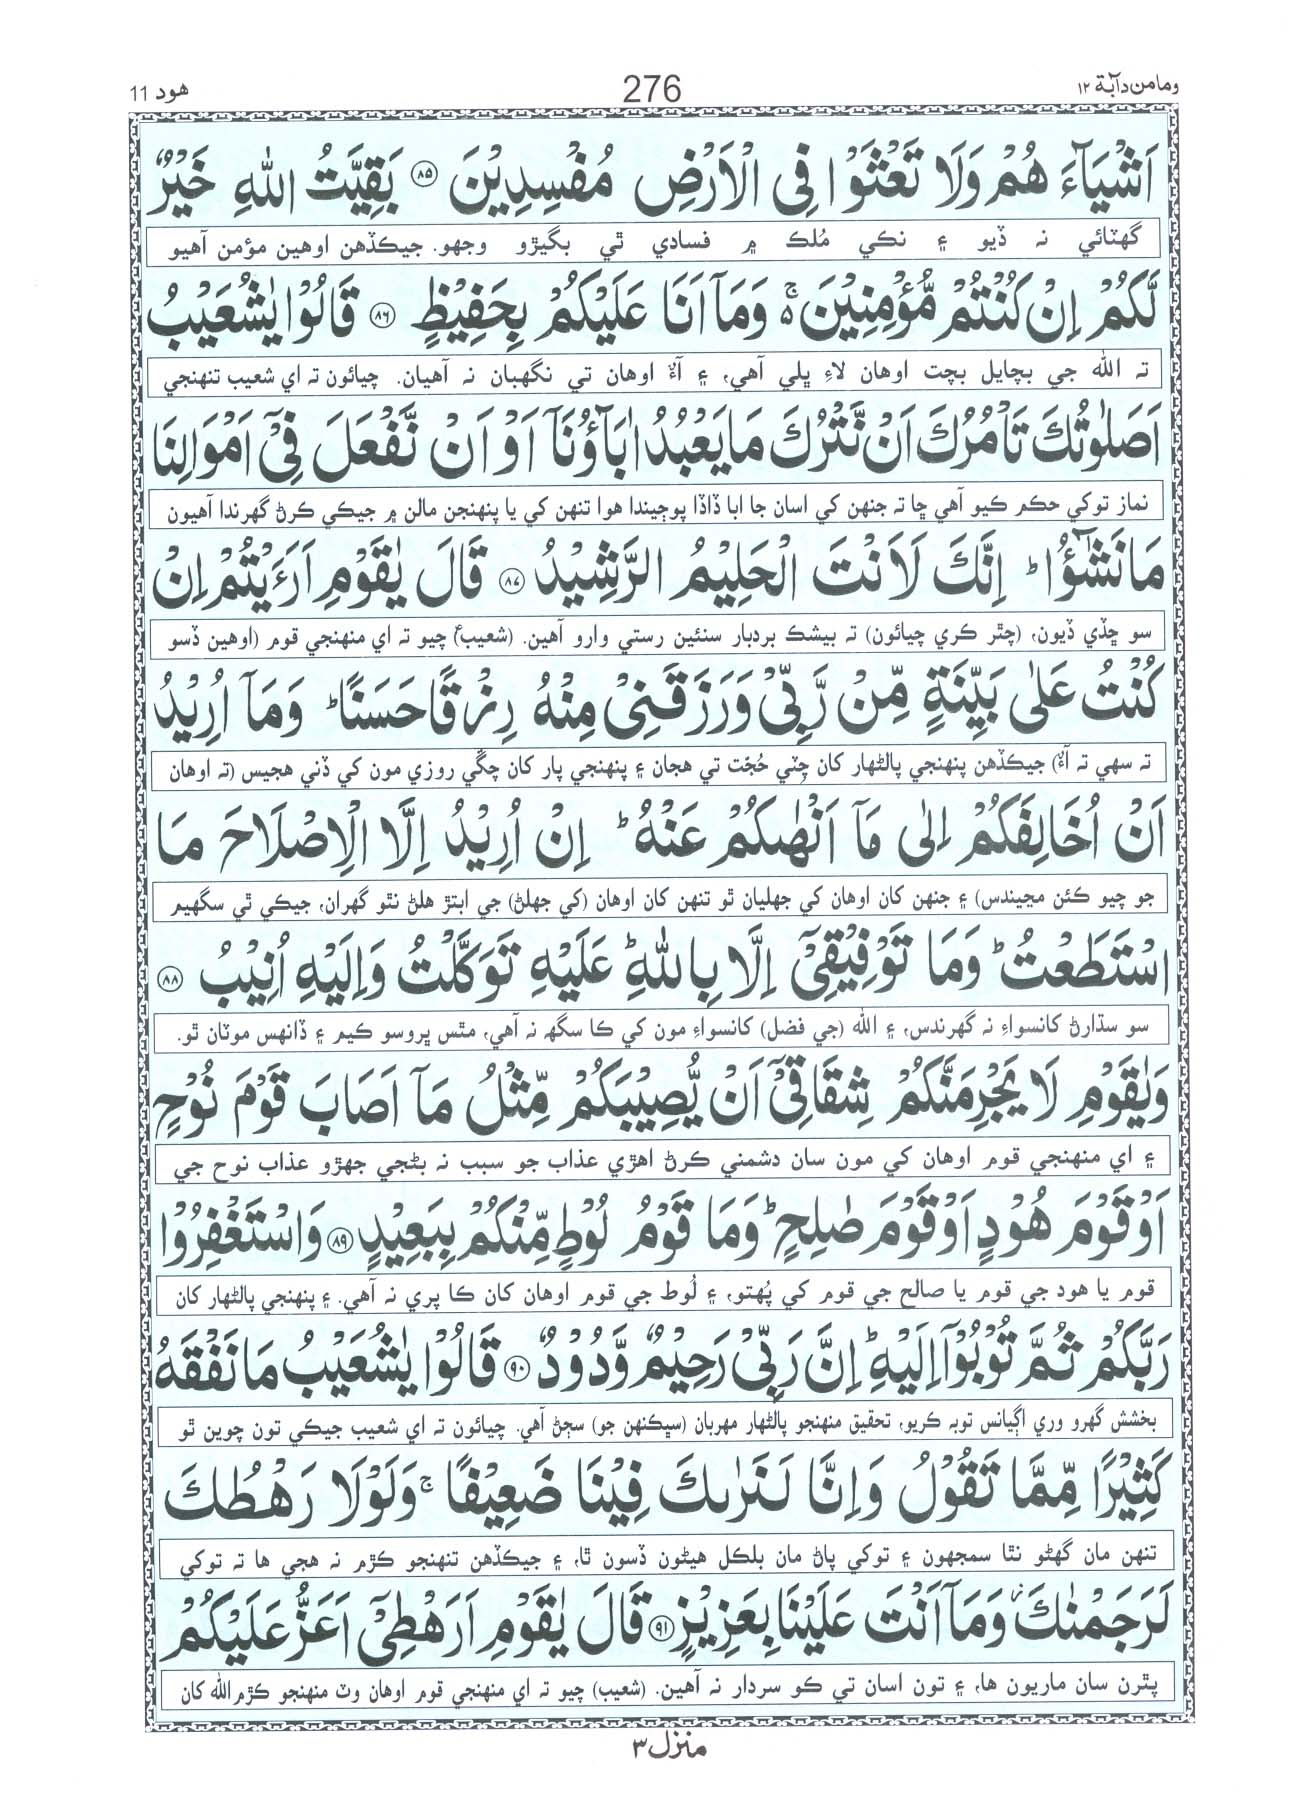 ومامن دآبة ١٢
276
هود 11
اَشْيَآءَ هُمْ وَلَا تَعْثَوْا فِى الْاَرْضِ مُفْسِدِيْنَ ﴿۸۵﴾ بَقِيَّتُ اللّٰهِ خَيْرٌ
گهٽائي نہ ڏيو ۽ نڪي مُلڪ ۾ فسادي ٿي بگيڙو وجهو. جيڪڏهن اوهين مؤمن آهيو
لَّكُمْ اِنْ كُنْتُمْ مُّؤْمِنِيْنَ ۚ۬ وَمَآ اَنَا عَلَيْكُمْ بِحَفِيْظٍ ﴿۸۶﴾ قَالُوْا يٰشُعَيْبُ
تہ الله جي بچايل بچت اوهان لاءِ ڀلي آهي، ۽ آءٌ اوهان تي نگهبان نہ آهيان. چيائون تہ اي شعيب تنهنجي
اَصَلٰوتُكَ تَاْمُرُكَ اَنْ نَّتْرُكَ مَا يَعْبُدُ اٰبَآؤُنَآ اَوْ اَنْ نَّفْعَلَ فِىْٓ اَمْوَالِنَا
نماز توکي حڪم ڪيو آهي ڇا تہ جنهن کي اسان جا ابا ڏاڏا پوڄيندا هوا تنهن کي يا پنهنجن مالن ۾ جيڪي ڪرڻ گهرندا آهيون
مَا نَشٰٓؤُا ؕ اِنَّكَ لَاَنْتَ الْحَلِيْمُ الرَّشِيْدُ ﴿۸۷﴾ قَالَ يٰقَوْمِ اَرَءَيْتُمْ اِنْ
سو ڇڏي ڏيون، (چٿر ڪري چيائون) تہ بيشڪ بردبار سنئين رستي وارو آهين. (شعيبؑ) چيو تہ اي منهنجي قوم (اوهين ڏسو
كُنْتُ عَلٰى بَيِّنَةٍ مِّنْ رَّبِّىْ وَرَزَقَنِىْ مِنْهُ رِزْقًا حَسَنًا ؕ وَمَآ اُرِيْدُ
تہ سهي تہ آءٌ) جيڪڏهن پنهنجي پالڻهار کان چِٽي حُجّت تي هجان ۽ پنهنجي پار کان چڱي روزي مون کي ڏني هجيس (تہ اوهان
اَنْ اُخَالِفَكُمْ اِلٰى مَآ اَنْهٰىكُمْ عَنْهُ ؕ اِنْ اُرِيْدُ اِلَّا الْاِصْلَاحَ مَا
جو چيو ڪئن مڃيندس) ۽ جنهن کان اوهان کي جهليان ٿو تنهن کان اوهان (کي جهلڻ) جي ابتڙ هلڻ نٿو گهران، جيڪي ٿي سگهيم
اسْتَطَعْتُ ؕ وَمَا تَوْفِيْقِىْٓ اِلَّا بِاللّٰهِ ؕ عَلَيْهِ تَوَكَّلْتُ وَاِلَيْهِ اُنِيْبُ ﴿۸۸﴾
سو سڌارڻ کانسواءِ نہ گهرندس، ۽ الله (جي فضل) کانسواءِ مون کي ڪا سگهہ نہ آهي، مٿس ڀروسو ڪيم ۽ ڏانهس موٽان ٿو.
وَيٰقَوْمِ لَا يَجْرِمَنَّكُمْ شِقَاقِىْٓ اَنْ يُّصِيْبَكُمْ مِّثْلُ مَآ اَصَابَ قَوْمَ نُوْحٍ
۽ اي منهنجي قوم اوهان کي مون سان دشمني ڪرڻ اهڙي عذاب جو سبب نہ بڻجي جهڙو عذاب نوح جي
اَوْ قَوْمَ هُوْدٍ اَوْ قَوْمَ صٰلِحٍ ؕ وَمَا قَوْمُ لُوْطٍ مِّنْكُمْ بِبَعِيْدٍ ﴿۸۹﴾ وَاسْتَغْفِرُوْا
قوم يا هود جي قوم يا صالح جي قوم کي پُهتو، ۽ لُوط جي قوم اوهان کان ڪا پري نہ آهي. ۽ پنهنجي پالڻهار کان
رَبَّكُمْ ثُمَّ تُوْبُوْٓا اِلَيْهِ ؕ اِنَّ رَبِّىْ رَحِيْمٌ وَّدُوْدٌ ﴿۹۰﴾ قَالُوْا يٰشُعَيْبُ مَا نَفْقَهُ
بخشش گهرو وري اڳيانس توبہ ڪريو، تحقيق منهنجو پالڻهار مهربان (سڀڪنهن جو) سڄڻ آهي. چيائون تہ اي شعيب جيڪي تون چوين ٿو
كَثِيْرًا مِّمَّا تَقُوْلُ وَاِنَّا لَنَرٰىكَ فِيْنَا ضَعِيْفًا ۚ وَلَوْلَا رَهْطُكَ
تنهن مان گهڻو نٿا سمجهون ۽ توکي پاڻ مان بلڪل هيڻون ڏسون ٿا، ۽ جيڪڏهن تنهنجو ڪڙم نہ هجي ها تہ توکي
لَرَجَمْنٰكَ ؗ وَمَآ اَنْتَ عَلَيْنَا بِعَزِيْزٍ ﴿۹۱﴾ قَالَ يٰقَوْمِ اَرَهْطِىْٓ اَعَزُّ عَلَيْكُمْ
پٿرن سان ماريون ها، ۽ تون اسان تي ڪو سردار نہ آهين. (شعيب) چيو تہ اي منهنجي قوم اوهان وٽ منهنجو ڪڙم الله کان
منزل ٣